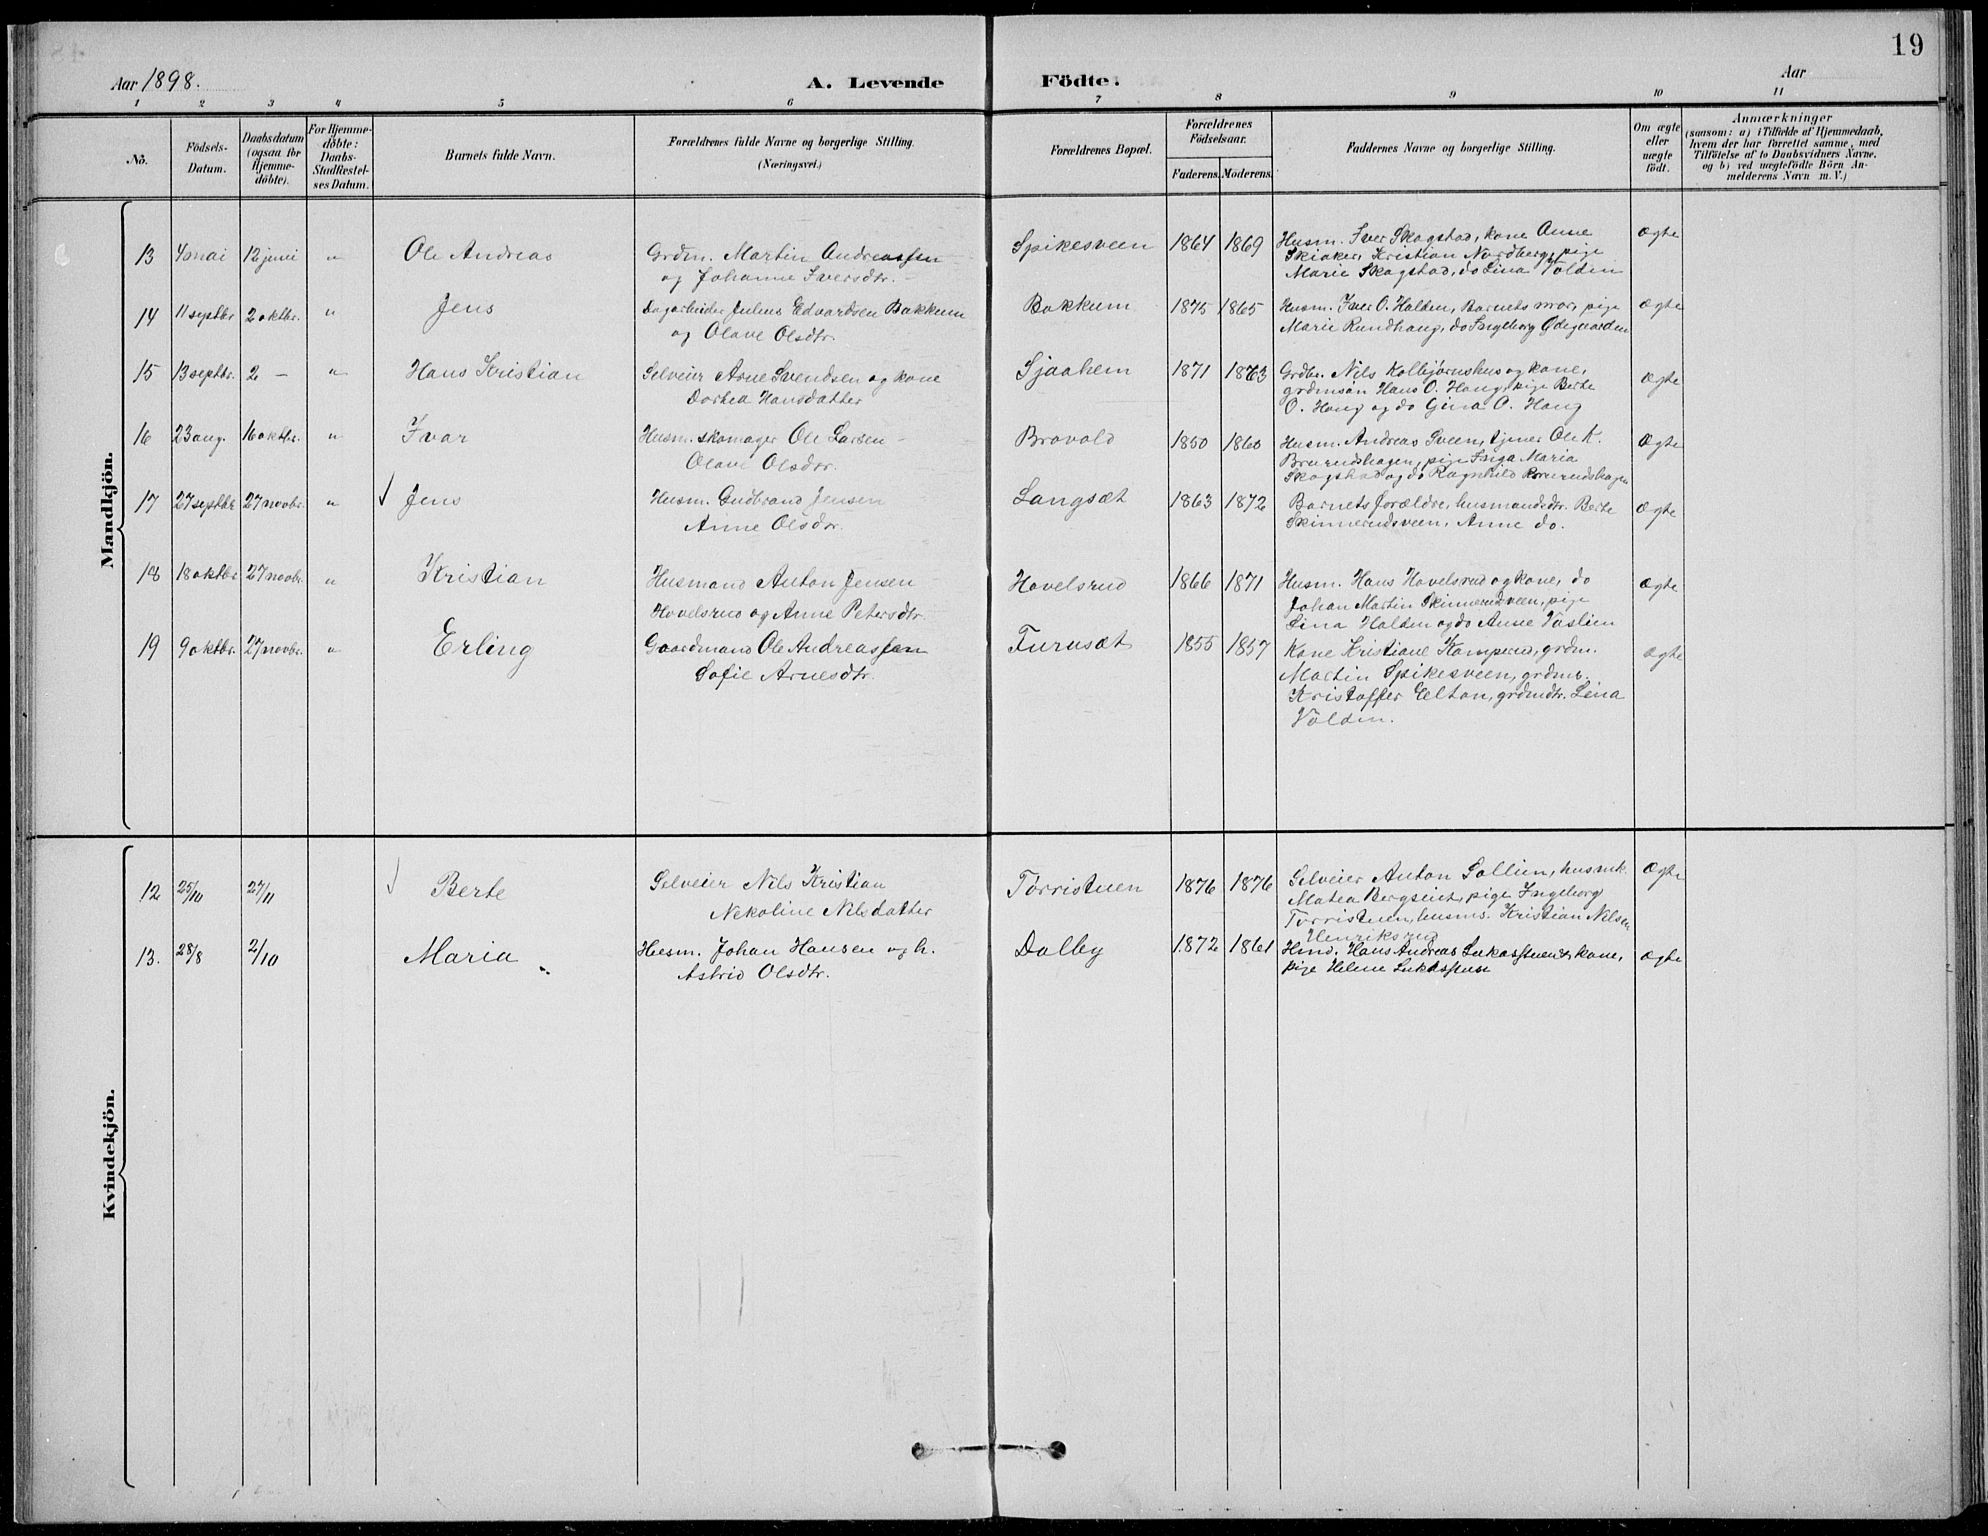 19
Aar 1898.
A. Levende Födte.
Aar
1 2 3 4 5 6 7 8 9 10 11
No.
Födsels-Datum.
Daabsdatum (ogsaa for Hjemme-döbte).
For Hjemme-döbte: Daabs-Stadfæstel-ses Datum.
Barnets fulde Navn.
Forældrenes fulde Navne og borgerlige Stilling.
(Næringsvei.)
Forældrenes Bopæl.
Forældrenes Födselsaar.
Faderens. Moderens.
Faddernes Navne og borgerlige Stilling.
Om ægte eller uægte födt.
Anmærkninger
(saasom: a) i Tilfælde af Hjemmedaab, hvem der har forrettet samme, med Tilföielse af to Daabsvidners Navne, og b) ved uægtefödte Börn An-melderens Navn m. V.)
Mandkjön.
13 4 mai 12 juni " Ole Andreas Grdm. Martin Andreassen Spikesveen 1864 1869 Husm. Iver Skogstad, kone Anne ægte
og Johanne Iversdtr. Skiaker, Kristian Nordberg, pige
Marie Skogstad, do Lina Volden
14 11 septbr 2 oktbr. " Jens Dagarbeider Julius Edvardsen Bakkum Bakkum 1875 1865 Husm. Iver O. Halden, Barnets mor, pige ægte
og Olave Olsdtr. Marie Rundhaug, do Ingeborg Ødegaarden
15 13 septbr. 2 — " Hans Kristian Selveier Arne Svendsen og kone Sjaahem 1871 1873 Grdbr. Nils Kolbjørnshus og kone, ægte
Dortea Hansdatter grdmsøn Hans O. Haug, pige Berte
O. Haug og do Gina O. Haug
16 23 aug. 16 oktbr. " Ivar Husm. skomager Ole Larsen Bravold 1850 1860 Husm. Andreas Sveen, tjener Ole K. ægte
Olave Olsdtr. Brurudshagen, pige Inga Maria
Skogstad og do Ragnhild Bruerudshagen
17 27 septbr 27 novbr. " Jens Husm. Gudbrand Jensen Langsæt 1863 1872 Barnets forældre, husmandsdtr. Berte ægte
Anne Olsdtr. Skinnerudsveen, Anne do.
18 18 oktbr 27 novbr. " Kristian Husmand Anton Jensen Hovelsrud 1866 1871 Husm. Hans Hovelsrud og kone, do ægte
Hovelsrud og Anne Petersdtr. Johan Martin Skinnerudsveen, pige
Lina Halden og do Anne Vaslien
19 9 oktbr. 27 novbr. " Erling Gaardmand Ole Andreassen Furusæt 1855 1857 Kone Kristiane Kamperud, grdm. ægte
Sofie Arnesdtr. Martin Spikesveen, grdms.
Kristoffer Elton, grdmdtr. Lina
Volden.
Kvindekjön.
12 25/10 27/11 Berte Selveier Nils Kristian Torristuen 1876 1876 Selveier Anton Sollien, ægte
Nekoline Nilsdatter Matea Bergseie, pige Ingeborg
Torristuen, husms. Kristian Nilsen
Henriksrud
13. 28/8 2/10 Maria Husm. Johan Hansen og h. Dalby 1872 1861 Hmd. Hans Andreas Lukasstuen & kone, ægte
Astrid Olsdtr. pige Helene Lukasstuen